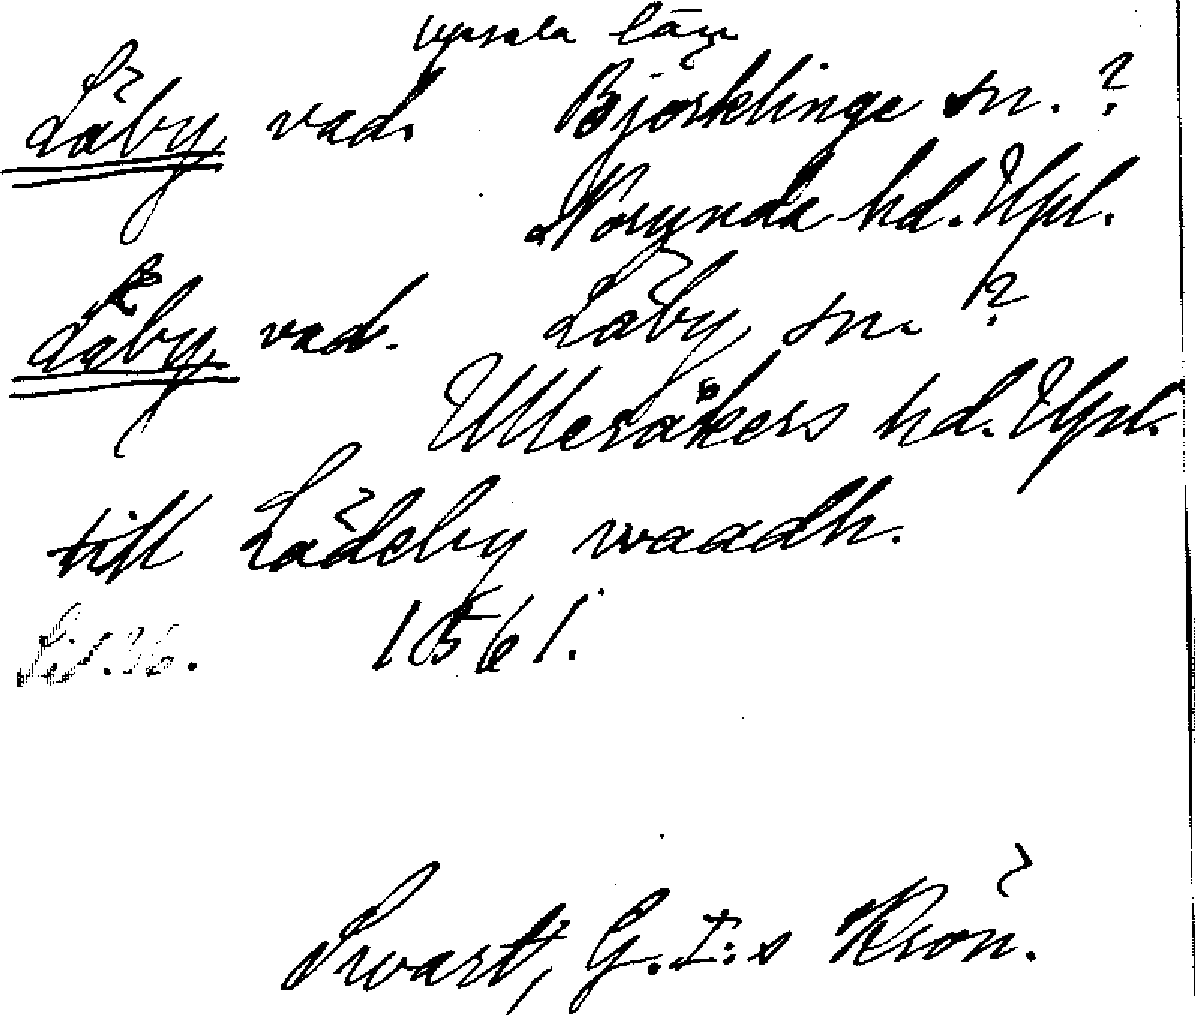 Upsala län
Läby vad. Björklinge sn. ?
Norunda hd. Upl.
Läby vad. Läby sn. ?
Ulleråkers hd. Upl.
till Lädeby waadh.
Sid. 36. 1561.
Swart, G. I:s Krön.